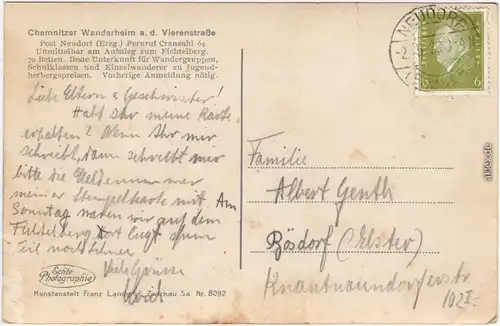 Chemnitzer Wanderheim a. d. Vierenstraße
Post Neudorf (Erzg.) Fernruf Cranzahl 64
Unmittelbar am Aufstieg zum Fichtelberg.
70 Betten. Beste Unterkunft für Wandergruppen,
Schulklassen und Einzelwanderer zu Jugend-
herbergspreisen. Vorherige Anmeldung nötig.
Liebe Eltern u. Geschwister!
Habt ihr meine Karte
erhalten? Wenn Ihr mir
schreibt, dann schreibt mir
bitte die Meldenummer
meiner Stempelkarte mit. Am
Sonntag waren wir auf dem
Fichtelberg dort liegt zum
Teil noch Schnee
Viele Grüsse
Echte
Photographie
Kunstanstalt Franz Landgraf, Zwickau Sa. Nr. 8092
NEUDORF
6
Familie
Albert Genth
Bösdorf (Elster)
Knautnaundorferstr
102I.